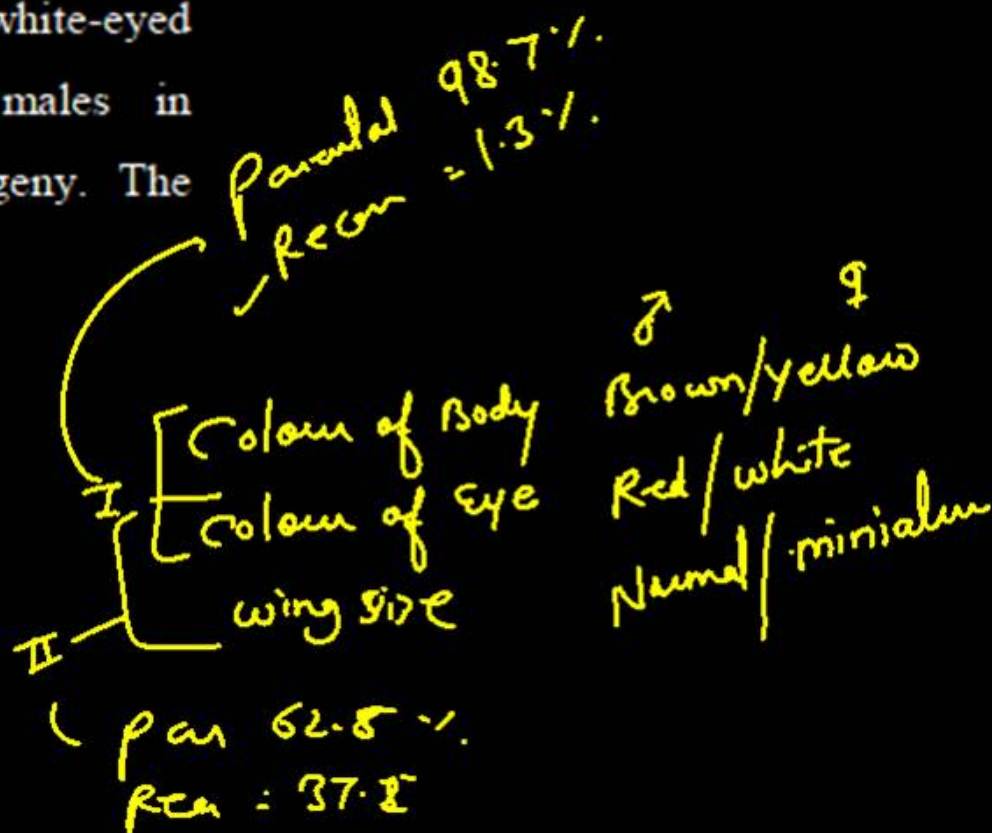 white-eyed
males in
geny. The
Parental 98.7%.
Recom = 1.3%.
♂ ♀
Colour of Body Brown/yellow
I
Colour of Eye Red/white
wing size Normal/
II
Par 62.8%.
Rec = 37.2